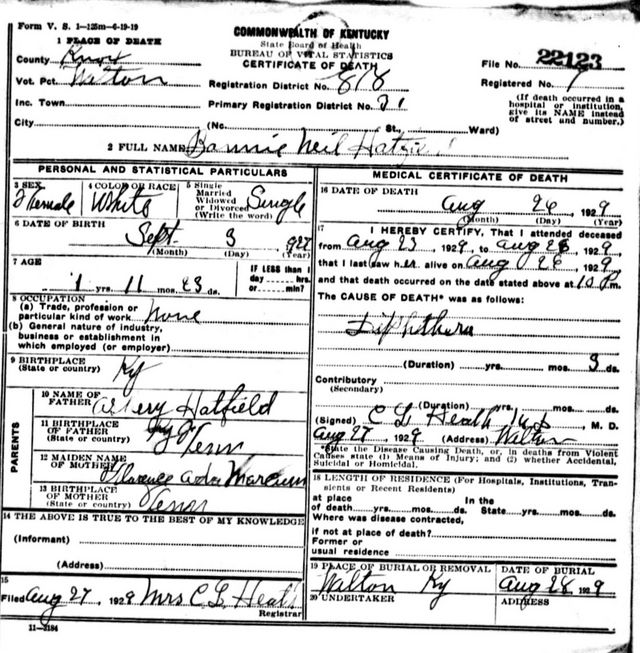 Form V. S. 1-125m-6-19-19
COMMONWEALTH OF KENTUCKY
State Board of Health
BUREAU OF VITAL STATISTICS
CERTIFICATE OF DEATH
1 PLACE OF DEATH
County Knox
Vot. Pct. Walton
Inc. Town
City
File No. 22123
Registration District No. 818
Registered No. 7
Primary Registration District No.
(If death occurred in a hospital or institution, give its NAME instead of street and number.)
(No. St., Ward)
2 FULL NAME Neil Hatfield
PERSONAL AND STATISTICAL PARTICULARS
3 SEX
Female
4 COLOR OR RACE
White
5 Single
Married
Widowed
or Divorced
(Write the word)
Single
6 DATE OF BIRTH
Sept. 3, 1927
(Month) (Day) (Year)
7 AGE
1 yrs. 11 mos. 23 ds.
IF LESS than 1
day hrs.
or min.?
8 OCCUPATION
(a) Trade, profession or
particular kind of work None
(b) General nature of industry,
business or establishment in
which employed (or employer)
9 BIRTHPLACE
(State or country) Ky
PARENTS
10 NAME OF
FATHER Hatfield
11 BIRTHPLACE
OF FATHER
(State or country) Tenn
12 MAIDEN NAME
OF MOTHER Marcum
13 BIRTHPLACE
OF MOTHER
(State or country) Tenn
14 THE ABOVE IS TRUE TO THE BEST OF MY KNOWLEDGE
(Informant)
(Address)
15
Filed Aug 27, 1929 Mrs C L Heath
Registrar
11-3184
MEDICAL CERTIFICATE OF DEATH
16 DATE OF DEATH
Aug 26, 1929
(Month) (Day) (Year)
17 I HEREBY CERTIFY, That I attended deceased
from Aug 23, 1929, to Aug 26, 1929,
that I last saw her alive on Aug 26, 1929,
and that death occurred on the date stated above at 10 P.m.
The CAUSE OF DEATH* was as follows:
Diphtheria
(Duration) yrs. mos. 3 ds.
Contributory
(Secondary)
(Duration) yrs. mos. ds.
(Signed) C L Heath, M. D.
Aug 27, 1929 (Address) Walton
*State the Disease Causing Death, or, in deaths from Violent
Causes state (1) Means of Injury; and (2) whether Accidental,
Suicidal or Homicidal.
18 LENGTH OF RESIDENCE (For Hospitals, Institutions, Transients or Recent Residents)
at place In the
of death yrs. mos. ds. State yrs. mos. ds.
Where was disease contracted,
if not at place of death?
Former or
usual residence
19 PLACE OF BURIAL OR REMOVAL
Walton Ky
DATE OF BURIAL
Aug 28 1929
20 UNDERTAKER
ADDRESS